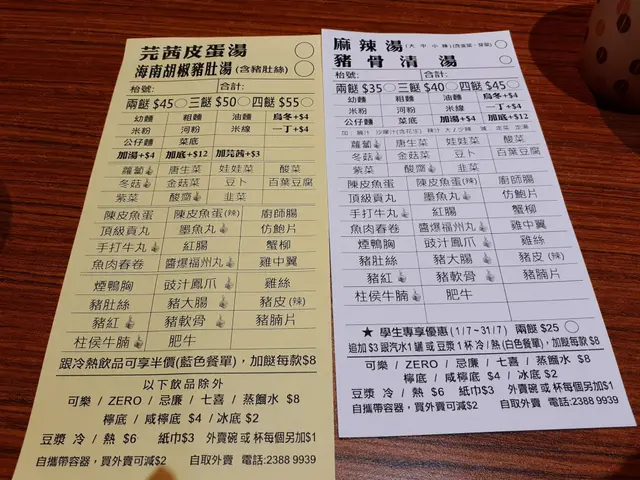 芫茜皮蛋湯
海南胡椒豬肚湯(含豬肚絲)
枱號: 合計:
兩餸 $45 三餸 $50 四餸 $55
幼麵 粗麵 油麵 烏冬+$4
米粉 河粉 米線 一丁+$4
公仔麵 菜底
加湯+$4 加底+$12 加芫茜+$3
蘿蔔 唐生菜 娃娃菜 酸菜
冬菇 金菇菜 豆卜 百葉豆腐
紫菜 酸齋 韭菜
陳皮魚蛋 陳皮魚蛋(辣) 廚師腸
頂級貢丸 墨魚丸 仿鮑片
手打牛丸 紅腸 蟹柳
魚肉春卷 醬爆福州丸 雞中翼
煙鴨胸 豉汁鳳爪 雞絲
豬肚絲 豬大腸 豬皮(辣)
豬紅 豬軟骨 豬腩片
柱侯牛腩 肥牛
跟冷熱飲品可享半價(藍色餐單), 加餸每款$8
以下飲品除外
可樂 / ZERO / 忌廉 / 七喜 / 蒸餾水 $8
檸底 / 咸檸底 $4 / 冰底 $2
豆漿 冷 / 熱 $6 紙巾$3 外賣碗 或 杯每個另加$1
自攜帶容器，買外賣可減$2 自取外賣 電話:2388 9939
麻辣湯(大 中 小 辣)
豬骨清湯
枱號: 合計:
兩餸 $35 三餸 $40 四餸 $45
幼麵 粗麵 油麵 烏冬+$4
米粉 河粉 米線 一丁+$4
公仔麵 菜底 加湯+$4 加底+$12
蘿蔔 唐生菜 娃娃菜 酸菜
冬菇 金菇菜 豆卜 百葉豆腐
紫菜 酸齋 韭菜
陳皮魚蛋 陳皮魚蛋(辣) 廚師腸
頂級貢丸 墨魚丸 仿鮑片
手打牛丸 紅腸 蟹柳
魚肉春卷 醬爆福州丸 雞中翼
煙鴨胸 豉汁鳳爪 雞絲
豬肚絲 豬大腸 豬皮(辣)
豬紅 豬軟骨 豬腩片
柱侯牛腩 肥牛
★ 學生專享優惠 (1/7~31/7) 兩餸 $25
追加 $3 跟汽水1罐 或 豆漿 1 杯 冷 / 熱 (白色餐單), 加餸每款$8
可樂 / ZERO / 忌廉 / 七喜 / 蒸餾水 $8
檸底 / 咸檸底 $4 / 冰底 $2
豆漿 冷 / 熱 $6 紙巾$3 外賣碗 或 杯每個另加$1
自攜帶容器，買外賣可減$2 自取外賣 電話:2388 9939